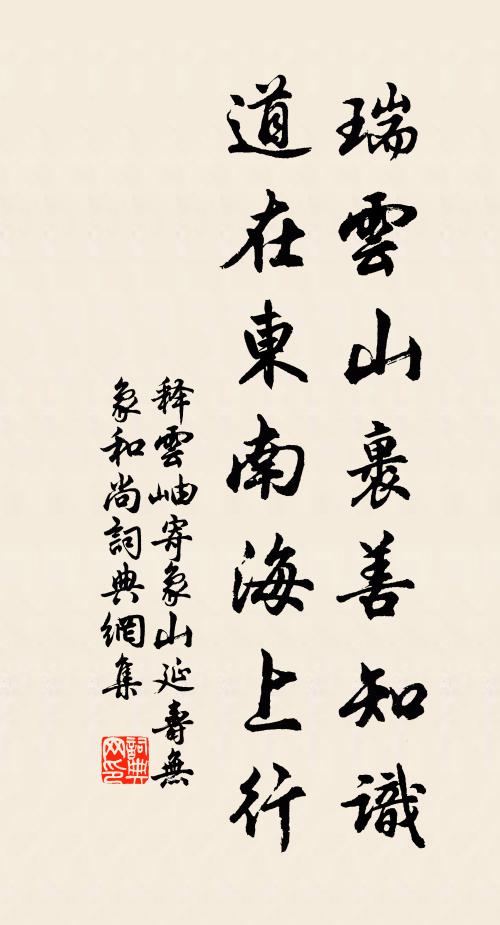 瑞雲山裏善知識
道在東南海上行
释雲岫寄象山延壽無
象和尚詞典網集
詞典
网印